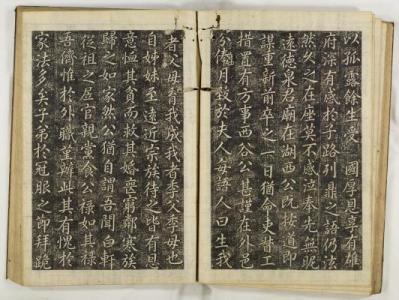 以孤露餘生受 國厚恩享有雄
府深有感於子路列鼎之語仍法
然久之在座莫不感泣奉先無昵
遠德泉君廟在湖西公既按道即
謀重新前卒之一日猶命吏料工
措置有方事西谷公甚謹在外邑
分俸月致於夫人每語人曰生我
者父母育我成我者季父季母也
自姊妹至遠近宗族待之皆有恩
意恤其貧而救其婚喪甯鄰寒族
歸之如家然公猶自謂吾聞白軒
從祖之居官親黨食公祿如其祿
吾儕惟於外職菫辦此其有愧於
家法多矣子弟於冠服之節拜跪